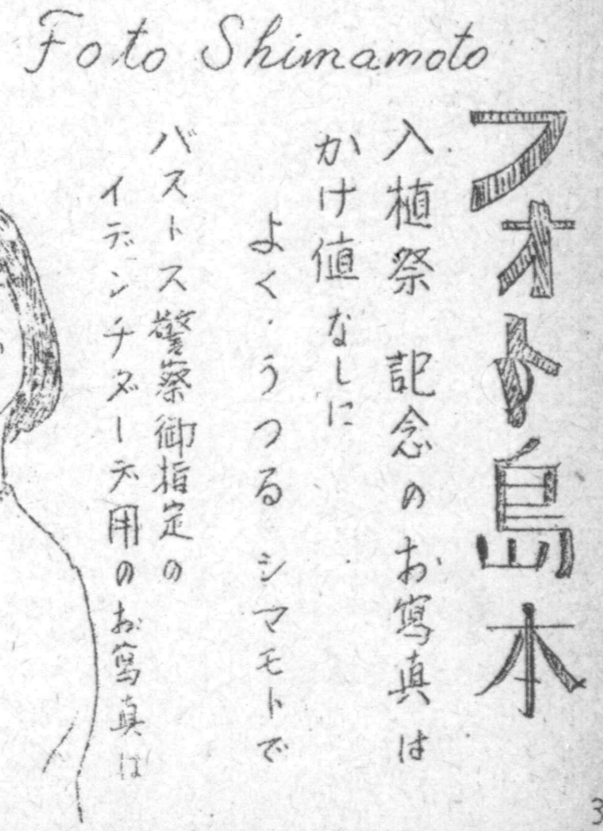 Foto Shimamoto
フオト島本
入植祭 記念のお寫真は
かけ値なしに
よく・うつる シマモトで
バストス警察御指定の
イデンチダーデ用のお寫真は
3